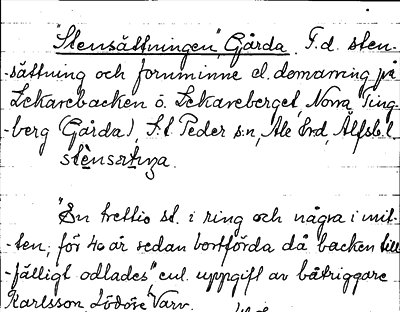 "Stensättningen", Gårda. F.d. sten-
-sättning och fornminne el. domarring på
Lekarebacken ö. Lekareberget, Norra Ting-
-berg (Gårda), S:t Peder s:n, Ale hrd, Älfsb. l.
stènsætnɩŋa.
"En trettio st. i ring och några i mit-
-ten, för 40 år sedan bortförda då backen till-
-fälligt odlades", enl. uppgift av båtriggare
Karlsson Lödöse Varv.